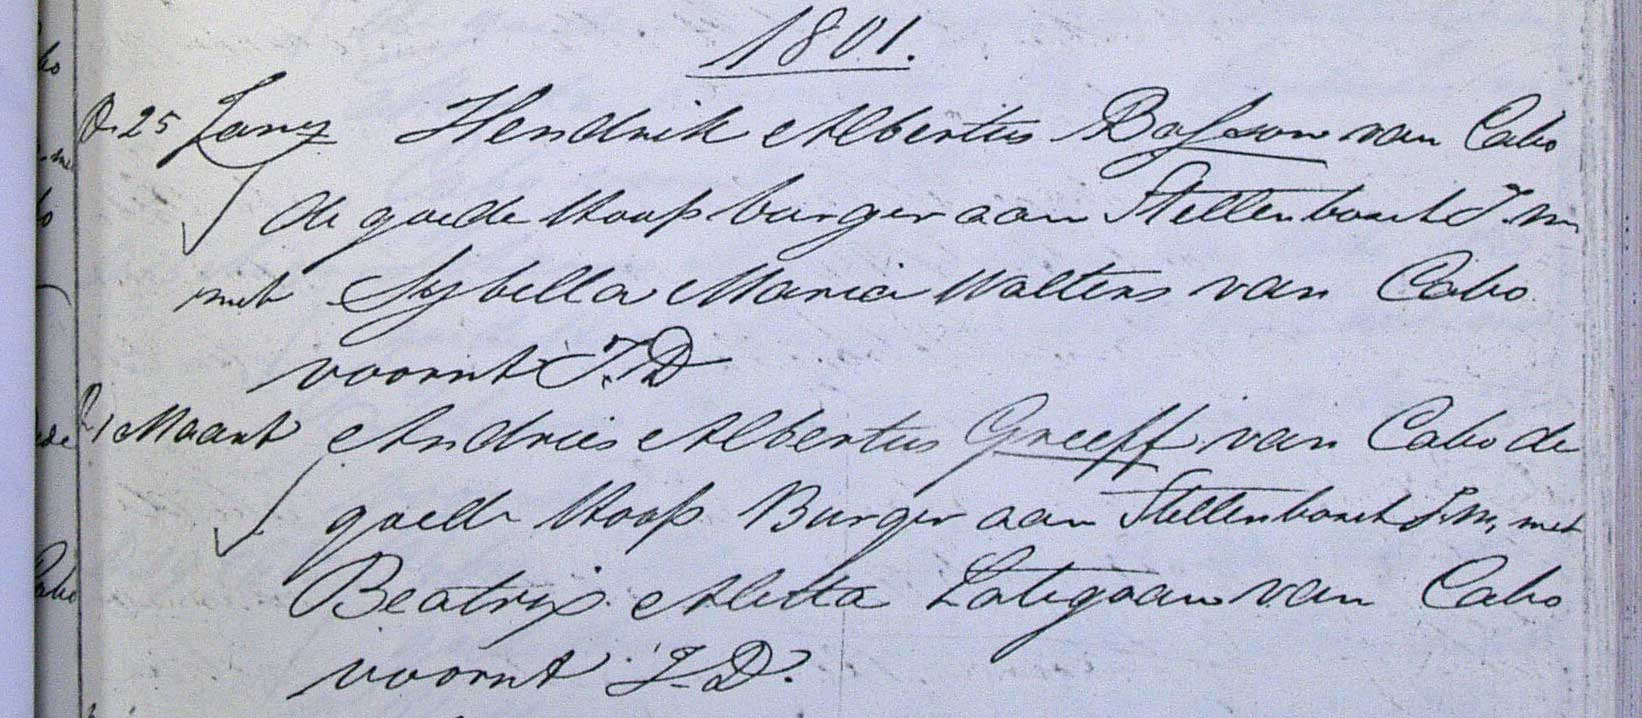 1801.
D. 25 Jany Hendrik Albertus Basson van Cabo
de goede Hoop burger aan Stellenbosch J.m
met Sybella Maria Walters van Cabo
voornt J.D
D. 1 Maart Andries Albertus Greeff van Cabo de
goede Hoop Burger aan Stellenbosch J.m, met
Beatrix Aletta Lategaan van Cabo
voornt J.D.